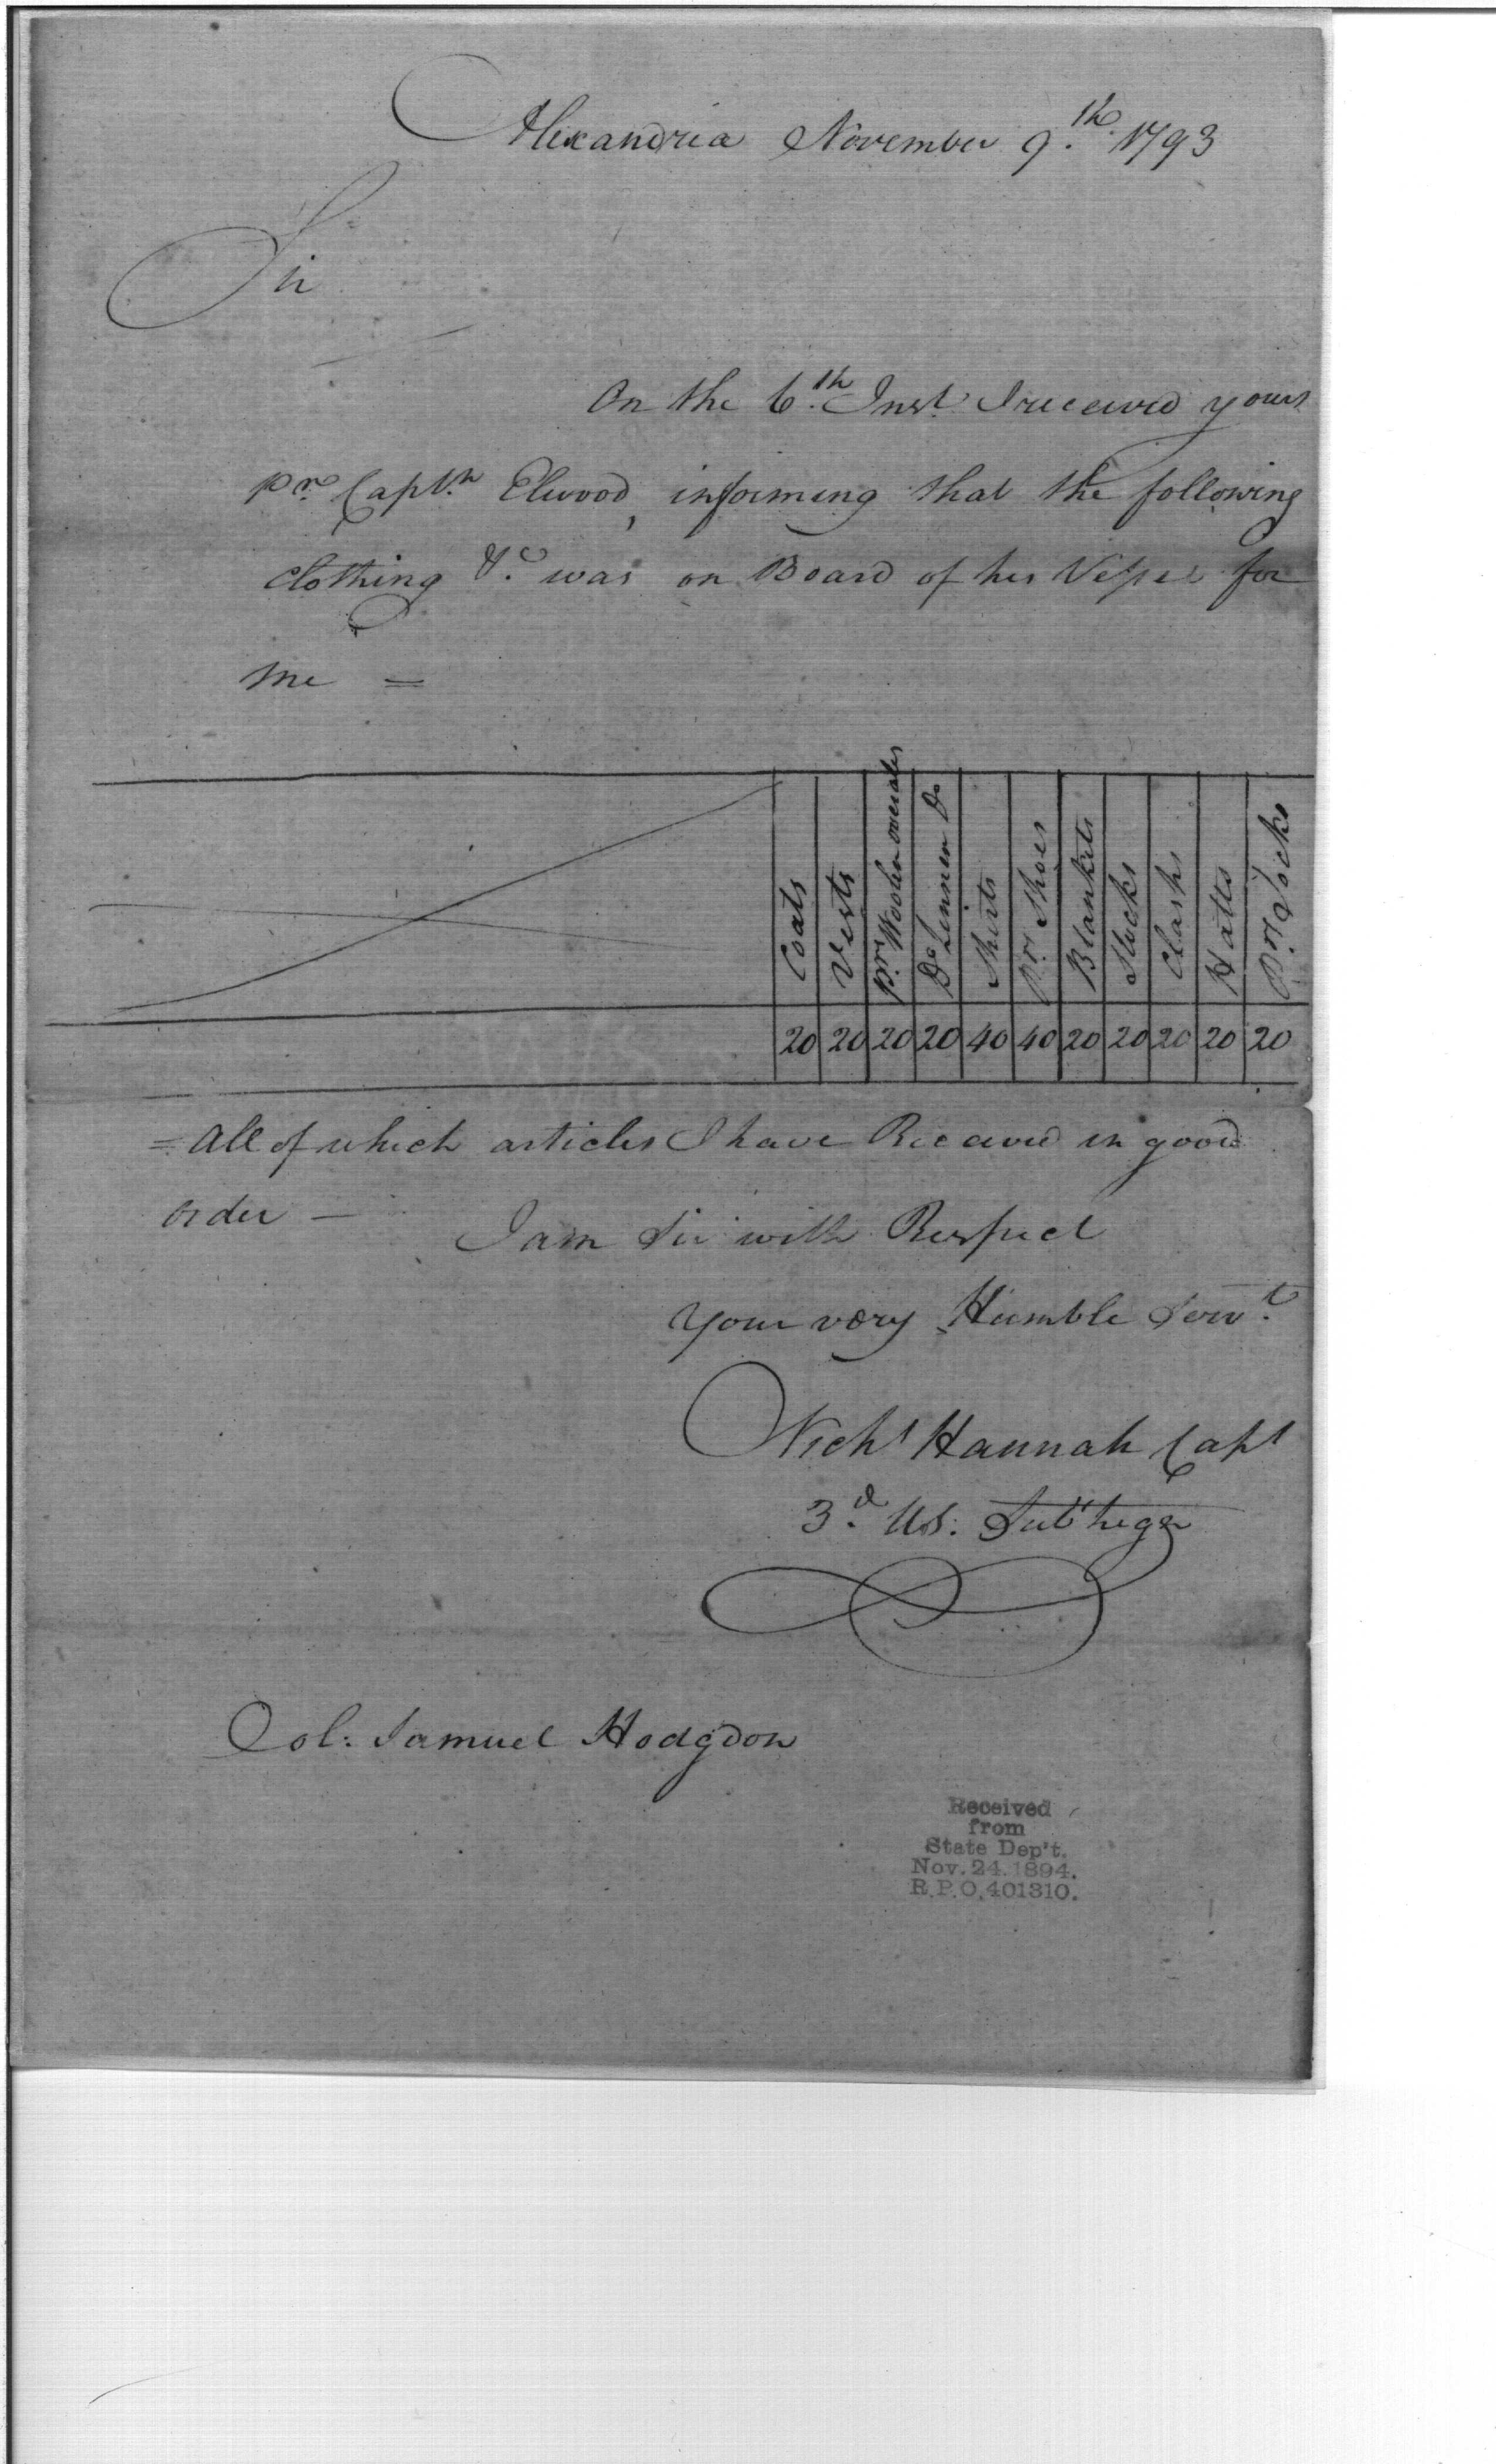 Alexandria November 9.th 1793
Sir
On the 6.th Inst. I received yours
pr. Capt.n Elwood, informing that the following
clothing &c. was on Board of his Vessel for
me =
Coats Vests pr. Woolen overalls Do Linnen Do Shirts pr. Shoes Blankets Stocks Clasps Hatts pr. Socks
20 20 20 20 40 40 20 20 20 20 20
= all of which articles I have Received in good
order —
I am Sir with Respect
your very Humble Serv.t
Nichs Hannah Capt
3.d US. Sub Legn
Col: Samuel Hodgdon
Received
from
State Dep't.
Nov. 24. 1894.
R.P.O. 401310.